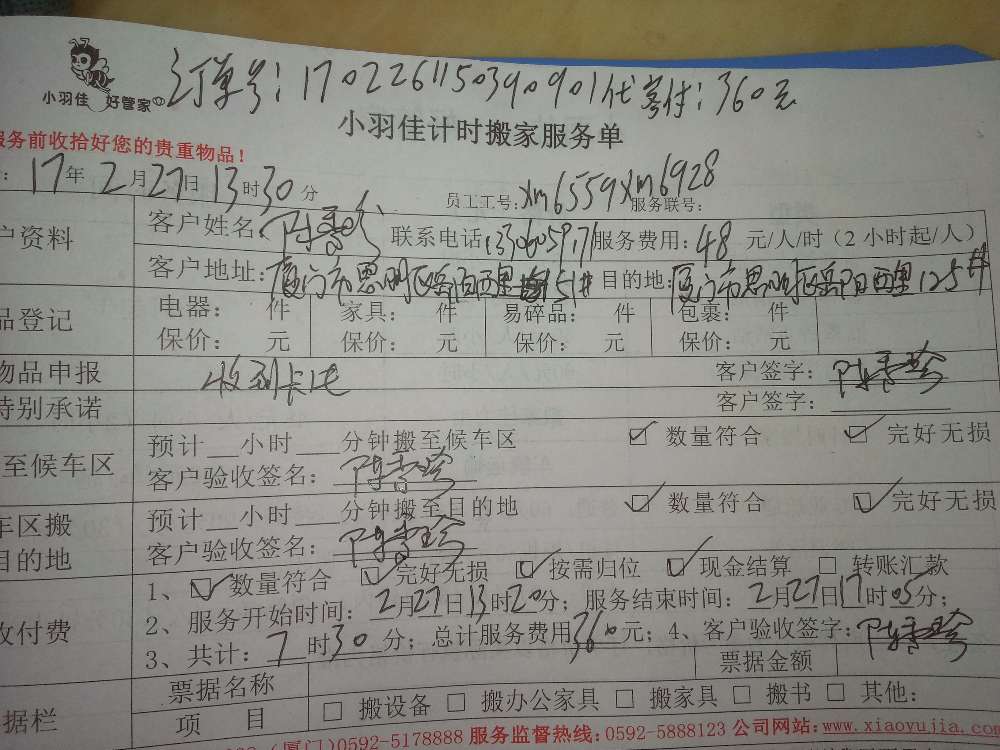 订单号：1702261150390901代寄付：360元
小羽佳 好管家
小羽佳计时搬家服务单
服务前收拾好您的贵重物品！
：17年2月27日13时30分 员工工号：xm6559xm6928 服务联号：
户资料 客户姓名： 联系电话：13306059171 服务费用：48元/人/时（2小时起/人）
客户地址：厦门市思明区岳阳西里51# 目的地：厦门市思明区岳阳西里125#
品登记 电器： 件 家具： 件 易碎品： 件 包裹： 件
保价： 元 保价： 元 保价： 元 保价： 元
物品申报 收到卡1屯 客户签字：
特别承诺 客户签字：
至候车区 预计__小时___分钟搬至候车区 ☑ 数量符合 ☑ 完好无损
客户验收签名：
车区搬 预计__小时___分钟搬至目的地 ☑ 数量符合 ☑ 完好无损
目的地 客户验收签名：
1、☑数量符合 ☑完好无损 ☑按需归位 ☑现金结算 □转账汇款
收付费 2、服务开始时间：2月27日13时20分；服务结束时间：2月27日17时05分；
3、共计：7时30分；总计服务费用360元；4、客户验收签字：
票据名称 票据金额
据栏 项 目 □ 搬设备 □ 搬办公家具 □ 搬家具 □ 搬书 □ 其他：
（厦门）0592-5178888 服务监督热线：0592-5888123 公司网站：www.xiaoyujia.com